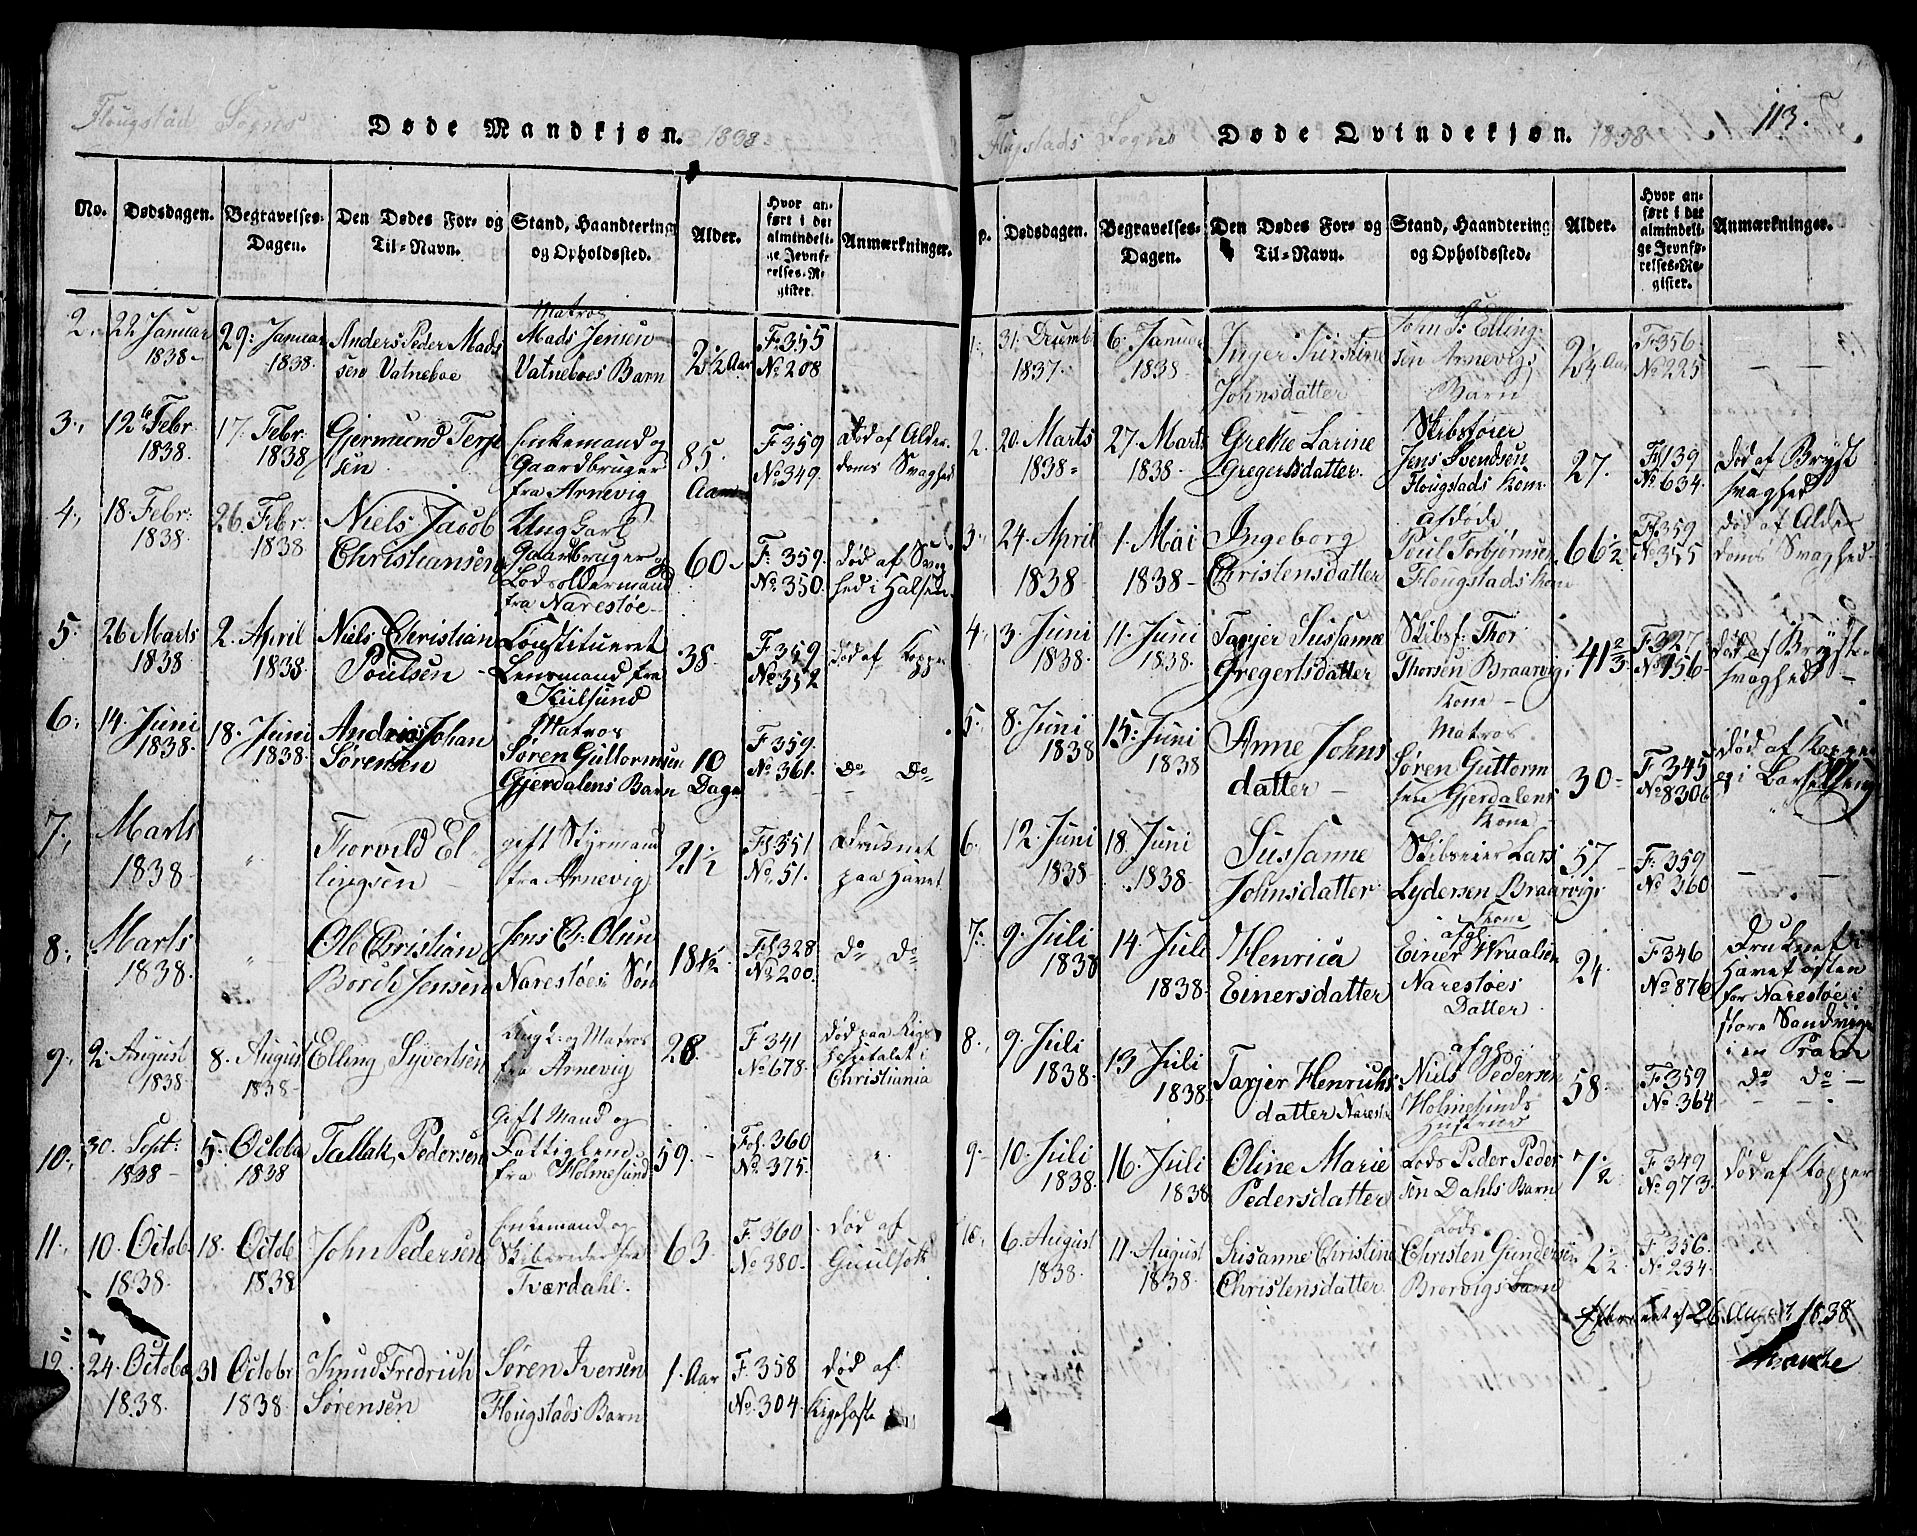 Flougstad Sogns
Døde Mandkjøn. 1838
No. Dødsdagen. Begravelses-Dagen. Den Dødes For- og Til-Navn. Stand, Haandtering og Opholdssted. Alder. Hvor anført i det almindelige Jevnførelses-Register. Anmærkninger.
2. 22 Januar 1838 29. Januar 1838. Anders Peder Madssen Vatneboe Matros Mads Jensen Vatneboes Barn 2 1/2 Aar F. 355 No 208
3. 12te Febr 1838. 17. Febr. 1838 Gjermund Terjesen Enkemand og Gaardbruger fra Arnevig 85 Aar F. 359 No 349. død af Alderdoms Svaghed
4. 18. Febr: 1838. 26. Febr. 1838 Niels Jacob Christiansen Ung Karl Gaardbruger og Lodsoldermand fra Narestøe 60 F. 359. No 350. død af Svaghed i Halsen
5. 26 Marts 1838 2. April 1838. Niels Christian Poulsen Constitueret Lensmand fra Kiilsund 38 F. 359 No 352 død af Kopper
6. 14. Juni 1838. 18. Juni 1838. Andreas Johan Sørensen Matros Søren Guttormsen Gjerdalens Barn 10 Dage F. 359. No 361. Do Do
7. Marts 1838 " Torvild Ellingsen gift Styrmand fra Arnevig 21 1/2 Fl. 351. No. 51. Druknet paa Havet
8. Marts 1838. " Ole Christian Borch Jensen Jens Ch: Olsen Narestøes Søn 18 1/2 Fl. 328 No 200. Do Do
9. 2. August 1838 8. August 1838 Elling Syvertsen Ung k. og Matros fra Arnevig 28. F 341 No 678. død paa Rigshospitalet i Christiania
10. 30. Sept: 1838 5. Octobr 1838 Tallak Pedersen Gift Mand og Fattiglem fra Holmesund 59. Fol. 360 No. 375. "
11. 10. Octob 1838. 18. Octobr 1838 John Pedersen Enkemand og Skibsreder fra Tværdahl. 63. F. 360 No 380. død af Guulsott
12. 24. Octobr 1838. 31 Octobr 1838 Knud Fredrich Sørensen Søren Iversen Flougstads Barn 1. Aar F. 358 No. 304. død af Kighoste
Flougstads Sogns
Døde Qvindekjøn. 1838
113.
Dødsdagen. Begravelses-Dagen. Den Dødes For- og Til-Navn. Stand, Haandtering og Opholdssted. Alder. Hvor anført i det almindelige Jevnførelses-Register. Anmærkninger.
1. 31. Decembr 1837. 6. Januar 1838 Inger Kirstine Johnsdatter John S: Ellingsen Arnevigs Barn 2 1/4 Aar F. 356. No 225
2. 20. Marts 1838 27. Marts 1838 Grethe Larine Gregertsdatter. Skibsfører Jens Svendsen Flougstads Kone 27. Fl 139 No 634. død af Brystsvaghed
3. 24. April 1838 1. Mai 1838 Ingeborg Christensdatter afdøde Poul Torbjørnsen Flougstads Kone 66 1/2 F. 359 No 355 død af Alderdoms Svaghed
4. 3. Juni 1838. 11. Juni 1838. Tarjer Sussanne Gregertsdatter Skibsf: Thor Thorsen Braarvigs Kone 41 2/3 F. 327 No 156 død af Brystsvaghed
5. 8. Juni 1838 15. Juni 1838 Anne Johnsdatter Matros Søren Guttormsen Gjerdalens Kone 30 F 345 No 830 død af Kopper og i Barselseng
6. 12. Juni 1838 18. Juni 1838 Sussanne Johnsdatter Skibseier Lars Lydersen Braarvigs Kone 57 F. 359 No 360
7. 9. Juli 1838 14. Juli 1838. Henrica Einersdatter afg: Einer Wraalsen Narestøes Datter. 24. F 346 No 876 Druknet i Havet østen for Narestøe i store Sandvigen i en Pram
8. 9. Juli 1838. 13 Juli 1838. Tarjer Henrichsdatter Narestøe afg. Niels Pedersen Holmesunds Hustrue 58 F. 359 No 364 Do Do
9. 10. Juli 1838. 16. Juli 1838 Oline Marie Pedersdatter Lods Peder Pedersen Dahls Barn 7 1/2 F. 349 No 973. død af Kopper
10. 6. August 1838. 11. August 1838. Susanne Christine Christensdatter Lods Christen Gundersen Brorvigs Barn 2 1/2 F. 356. No 234.
Efterseet d 26 August 1838